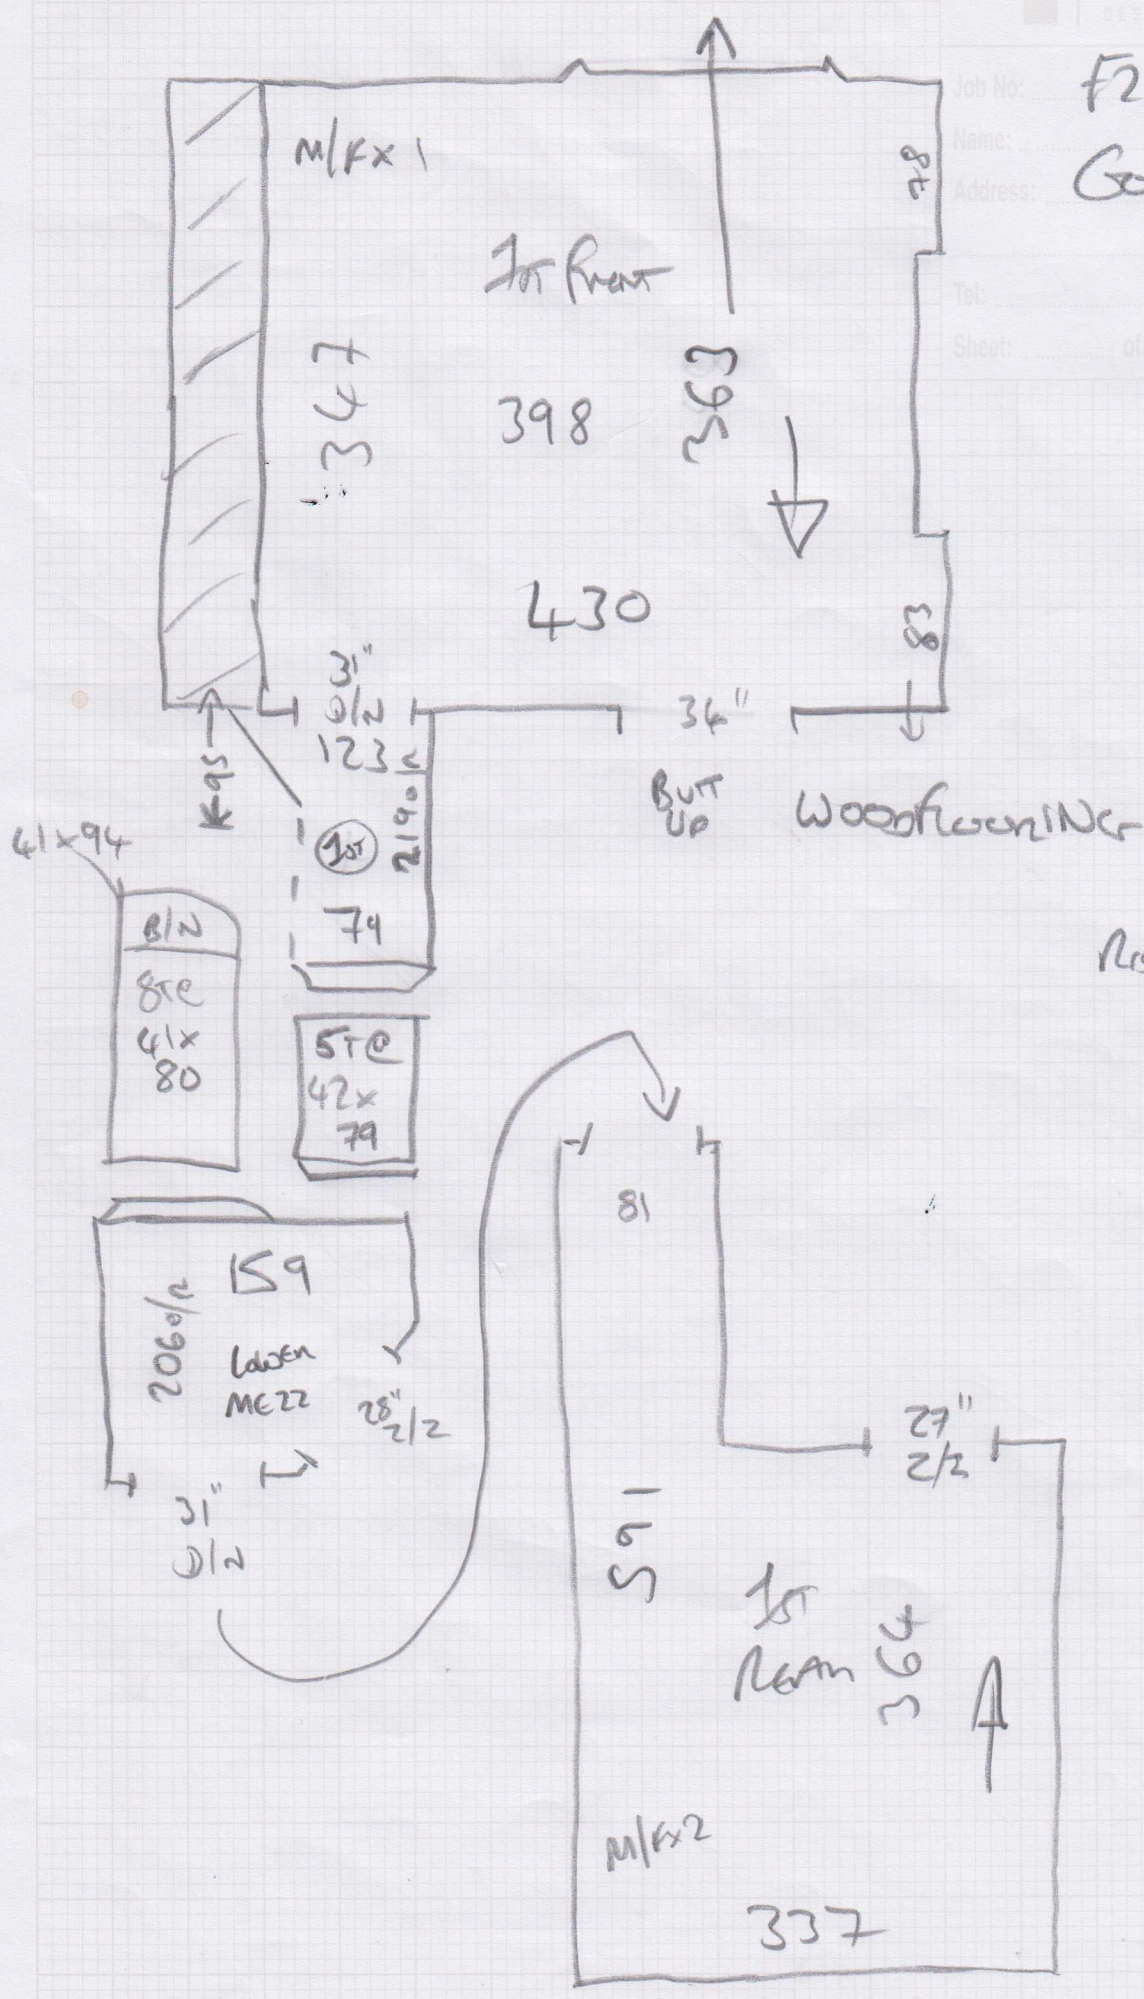 Job No:
F2
Name:
Address:
Tel:
Sheet: of
M/Fx 1
78
1ST FRONT
347
398
363
430
83
31"
O/N
34"
123
BUTT
UP
WOODFLOORING
K95
219 o/r
1ST
74
41x94
B/N
8T@
41x
80
5T@
42x
79
81
159
206 o/r
LOWER
MEZZ
28"
2/2
27"
2/2
31"
O/N
165
1ST
REAR
364
M/Fx2
337